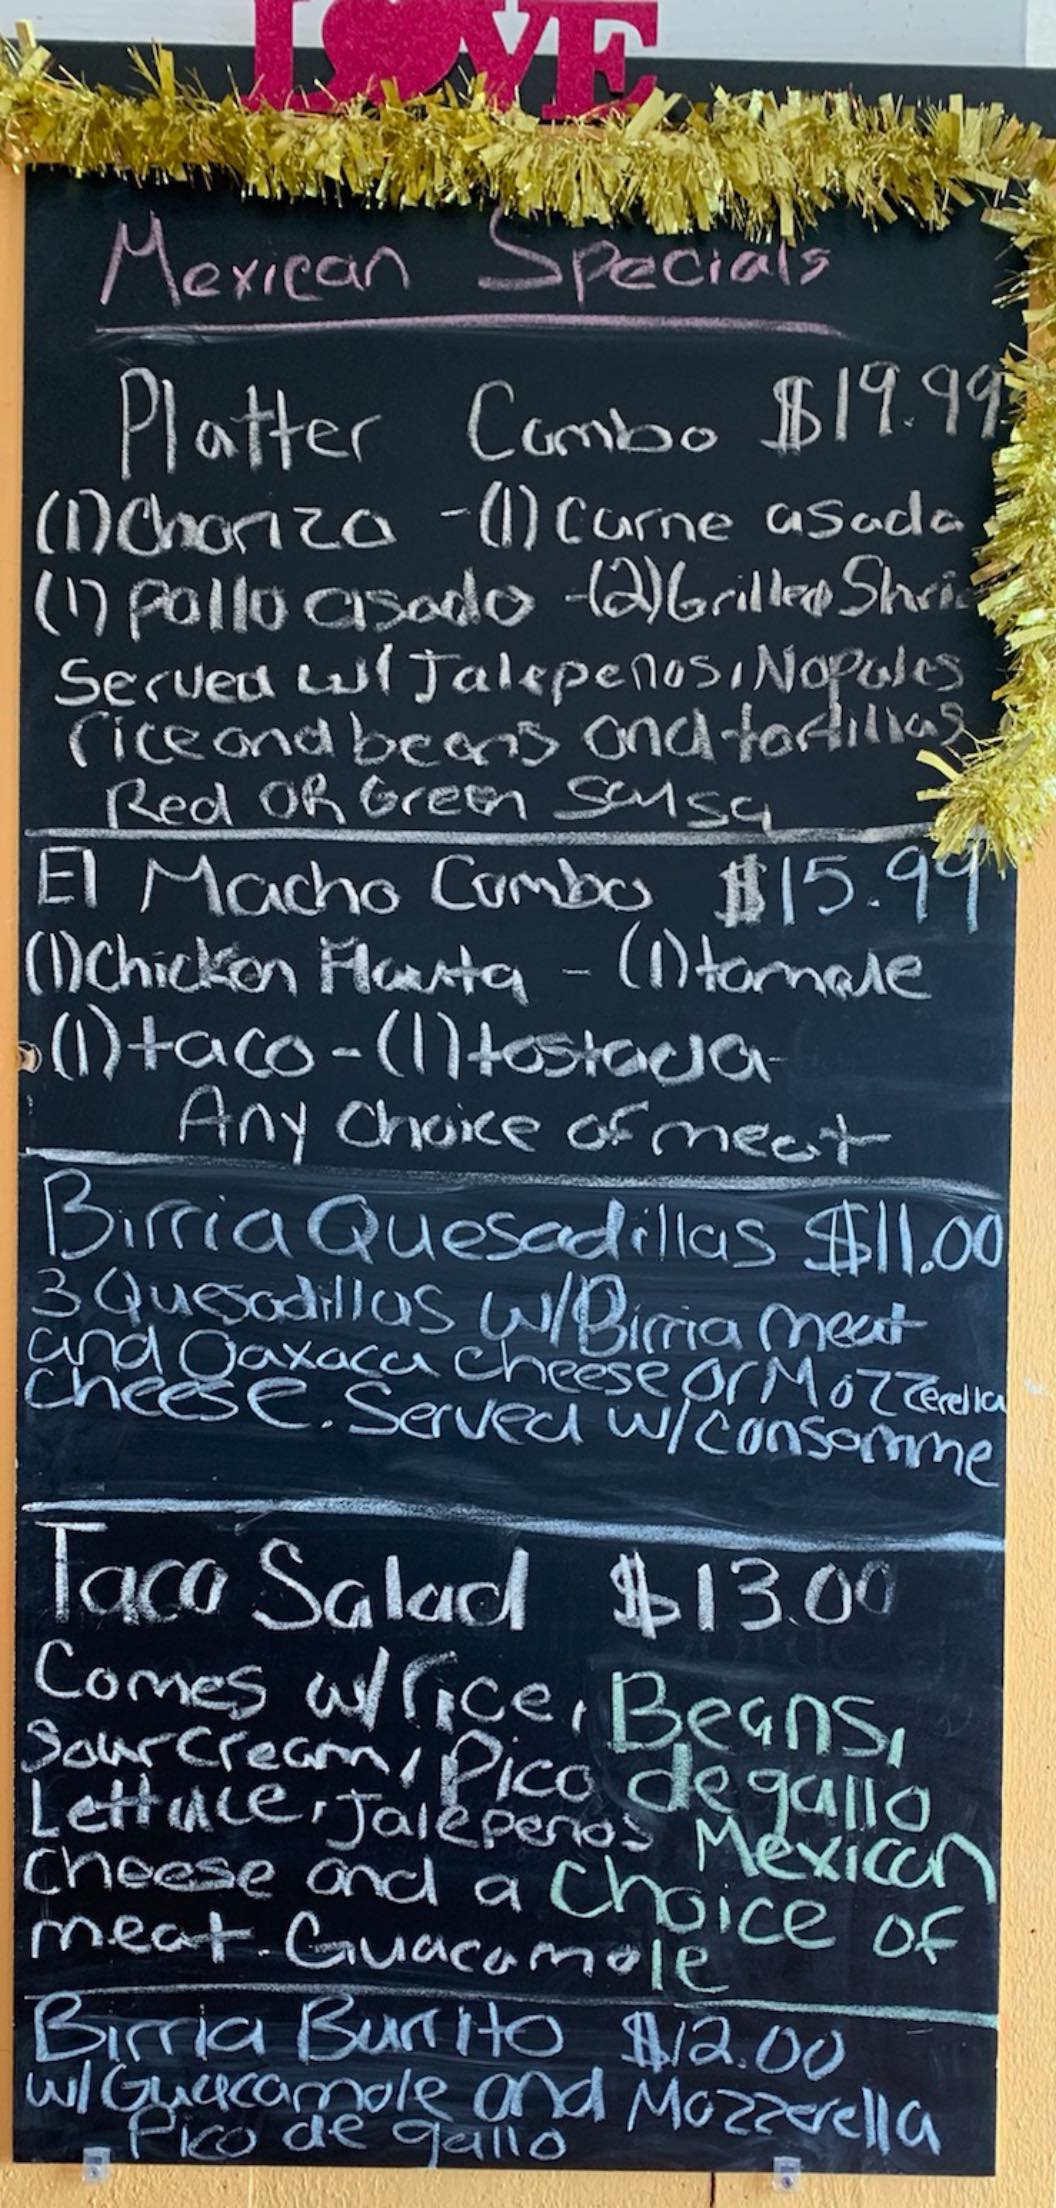 LOVE
Mexican Specials
Platter Combo $19.99
(1) Chorizo - (1) Carne asada
(1) pollo asado - (2) Grilled
Served w/ Jalepenos, Nopales
rice and beans and tortillas
Red OR Green Salsa
El Macho Combo $15.99
(1) Chicken Flauta - (1) tamale
(1) taco - (1) tostada
Any choice of meat
Birria Quesadillas $11.00
3 Quesadillas w/ Birria meat
and Oaxaca cheese or Mozzerella
cheese. Served w/ consomme
Taco Salad $13.00
Comes w/ rice, Beans,
Sour cream, Pico de gallo
Lettuce, Jalepenos Mexican
cheese and a choice of
meat. Guacamole
Birria Burrito $12.00
w/ Guacamole and Mozzerella
Pico de gallo